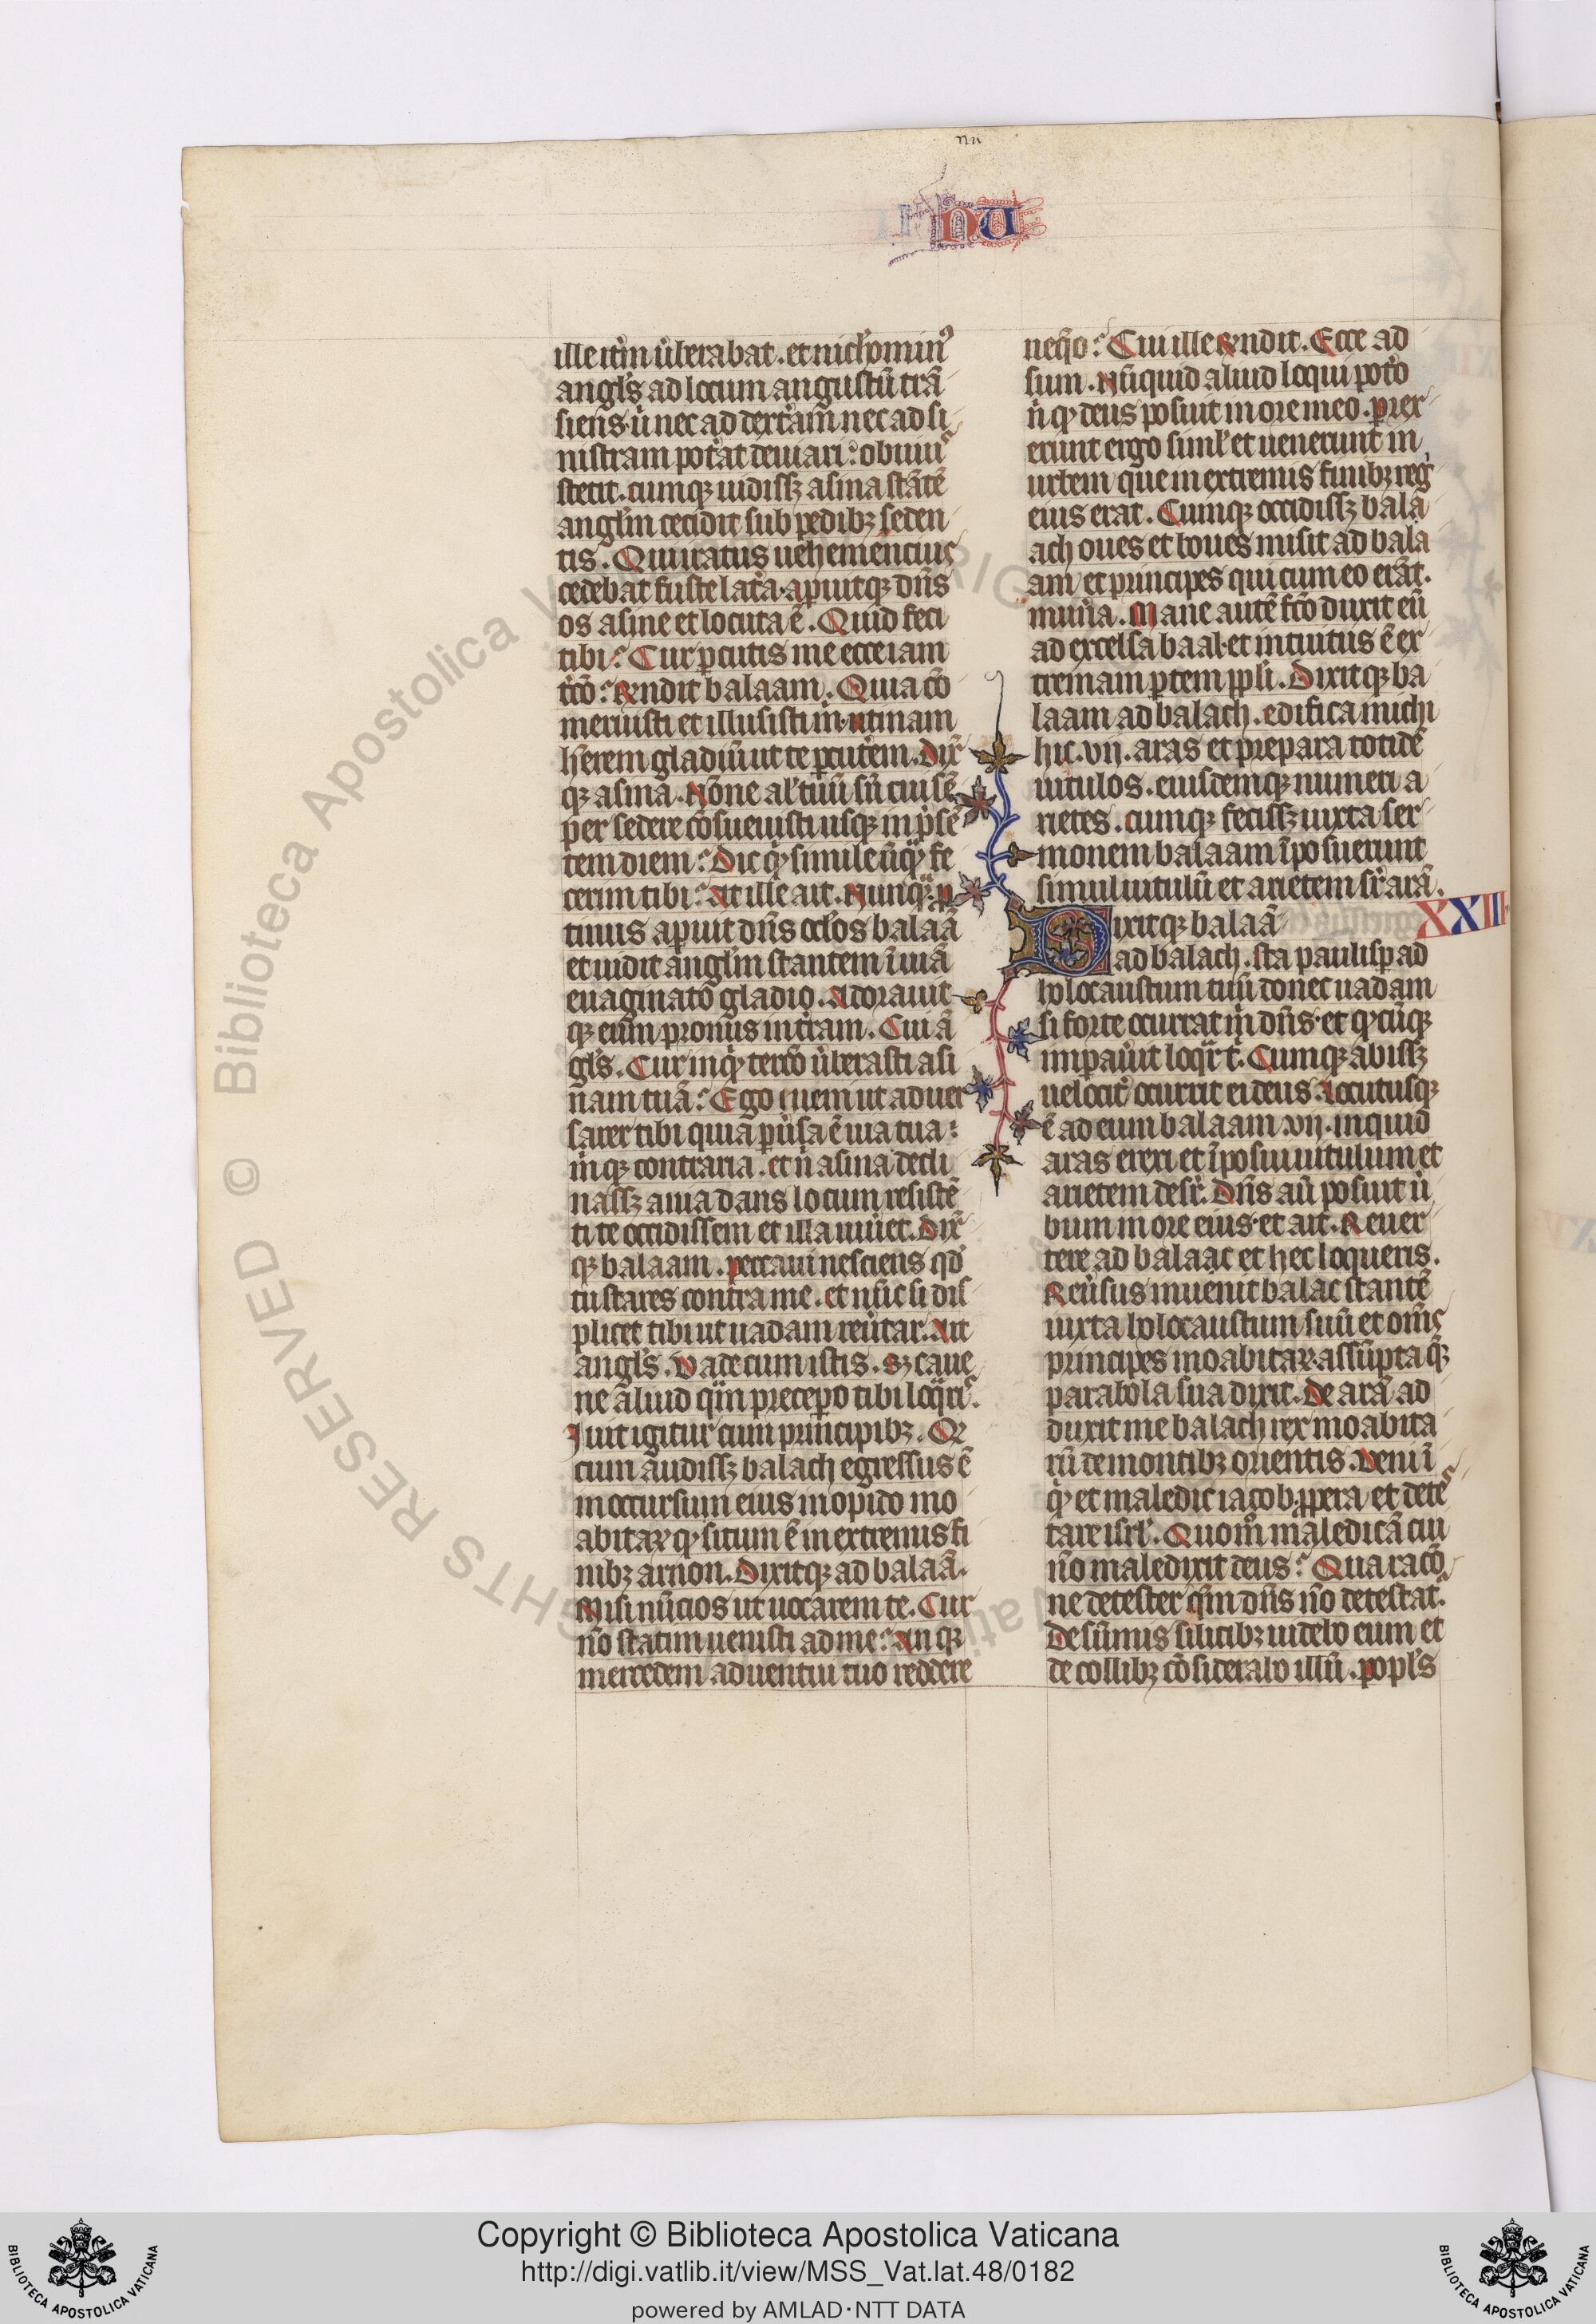 nu
NU
ille itm̃ ũberabat. et nichomin⁹
angl̃s ad locum angustũ trã
siens. ũ nec ad dextram nec ad si
nistram pot̃at deuiari: obuiuˢ
stetit. cumqꝫ uidissꝫ asina stãtẽ
angl̃m cecidit sub pedibꝫ seden
tis. Qui iratus uehemencius
cedebat fuste lat̃a. aꝑuitqꝫ dñs
os asine et locuta ẽ. Quid feci
tibi? Cur ꝑcutis me ecce iam
t̃cõ? Rñdit balaam. Quia cõ
meruisti et illusisti m̃. utinam
hẽrem gladiũ ut te ꝑcut̃em. Dix̃
qꝫ asina. Nõne al̃ tuũ sũ cui sẽ
per sedere cõsueuisti usqꝫ in p̃sẽ
tem diem? Dic qͥ simile ũqͣ fe
cerim tibi? At ille ait. Nunqͣꝫ. ꝓ
tinus aꝑuit dñs ocl̃os balaã
et uidit angl̃m stantem ĩ uia
euaginato gladio. Adorauit
qꝫ eum pronus in t̃ram. Cui ã
gl̃s. Cur inqͥ tercõ ũberasti asi
nam tuã? Ego ueni ut aduer
sarer tibi quia ꝑũsa ẽ uia tua:
m̃qꝫ contraria. et ñ asina decli
nassꝫ a uia dans locum resistẽ
ti te occidissem et illa uiũet. Dix̃
qꝫ balaam. peccaui nesciens qď
tu stares contra me. et nũc si dis
plicet tibi ut uadam reũtar. Ait
angl̃s. Vade cum istis. Sꝫ caue
ne aliud qͣm precepo tibi loqͣrˢ.
Iuit igitur cum principibꝫ. Qꝫ
cum audissꝫ balach egressus ẽ
in occursum eius in opido mo
abitaꝝ qͥ situm ẽ in extremis fi
nibꝫ arnon. Dixitqꝫ ad balaã.
Misi nũcios ut uocarem te. Cur
nõ statim uenisti ad me? An qꝛ
mercedem aduentui tuo reddere
neq̃o? Cui ille rñdit. Ecce ad
sum. Nũquid aliud loqui pot̃o
ñ qͥ deus posuit in ore meo. prex
erunt ergo siml̃ et uenerunt in
urbem que in extremis finibꝫ reg̃
eius erat. Cumqꝫ occidissꝫ bala
ach oues et boues misit ad bala
am et principes qui cum eo erãt.
mun̄a. Mane autẽ fc̃o duxit eũ
ad excelsa baal. et intuitus ẽ ex
tremam ꝑtem ppl̃i. Dixitqꝫ ba
laam ad balach. edifica michi
hic. vij. aras et prepara totidẽ
uitulos. eiusdemqꝫ numeri a
rietes. cumqꝫ fecissꝫ iuxta ser
monem balaam ĩposuerunt
simul uitulũ et arietem sr̃ arã.
XXIII
Dixitqꝫ balaã
ad balach. sta paulisꝑ ad
holocaustum tuũ donec uadam
si forte occurrat m̃ dñs. et qͥcũqꝫ
imꝑaũit loqͣr t̃. Cumqꝫ abissꝫ
uelocit̃ occurrit ei deus. Locutusqꝫ
ẽ ad eum balaam. vij. inquid
aras erexi et ĩposui uitulum et
arietem desr̃. Dñs aũ posuit ũ
bum in ore eius. et ait. Reuer
tere ad balaac et hec loqueris.
Reũsus inuenit balac stantẽ
iuxta holocaustum suũ et om̃s
principes moabitaꝝ. assũptaqꝫ
parabola sua dixit. De arã ad
duxit me balach rex moabita
rũ de montibꝫ orientis. Veni ĩ
qͥ et maledic iacob. ꝓpera et detẽ
tare isrl̃. Quom̃o maledicã cui
nõ maledixit deus? Qua racõ
ne detester qͣm dñs nõ detestat̃.
De sũmis silicibꝫ uidebo eum et
de collibꝫ cõsiderabo illũ. popl̃s
© Biblioteca Apostolica Vaticana
RIGHTS RESERVED
Copyright © Biblioteca Apostolica Vaticana
http://digi.vatlib.it/view/MSS_Vat.lat.48/0182
powered by AMLAD·NTT DATA
BIBLIOTECA APOSTOLICA VATICANA
BIBLIOTECA APOSTOLICA VATICANA